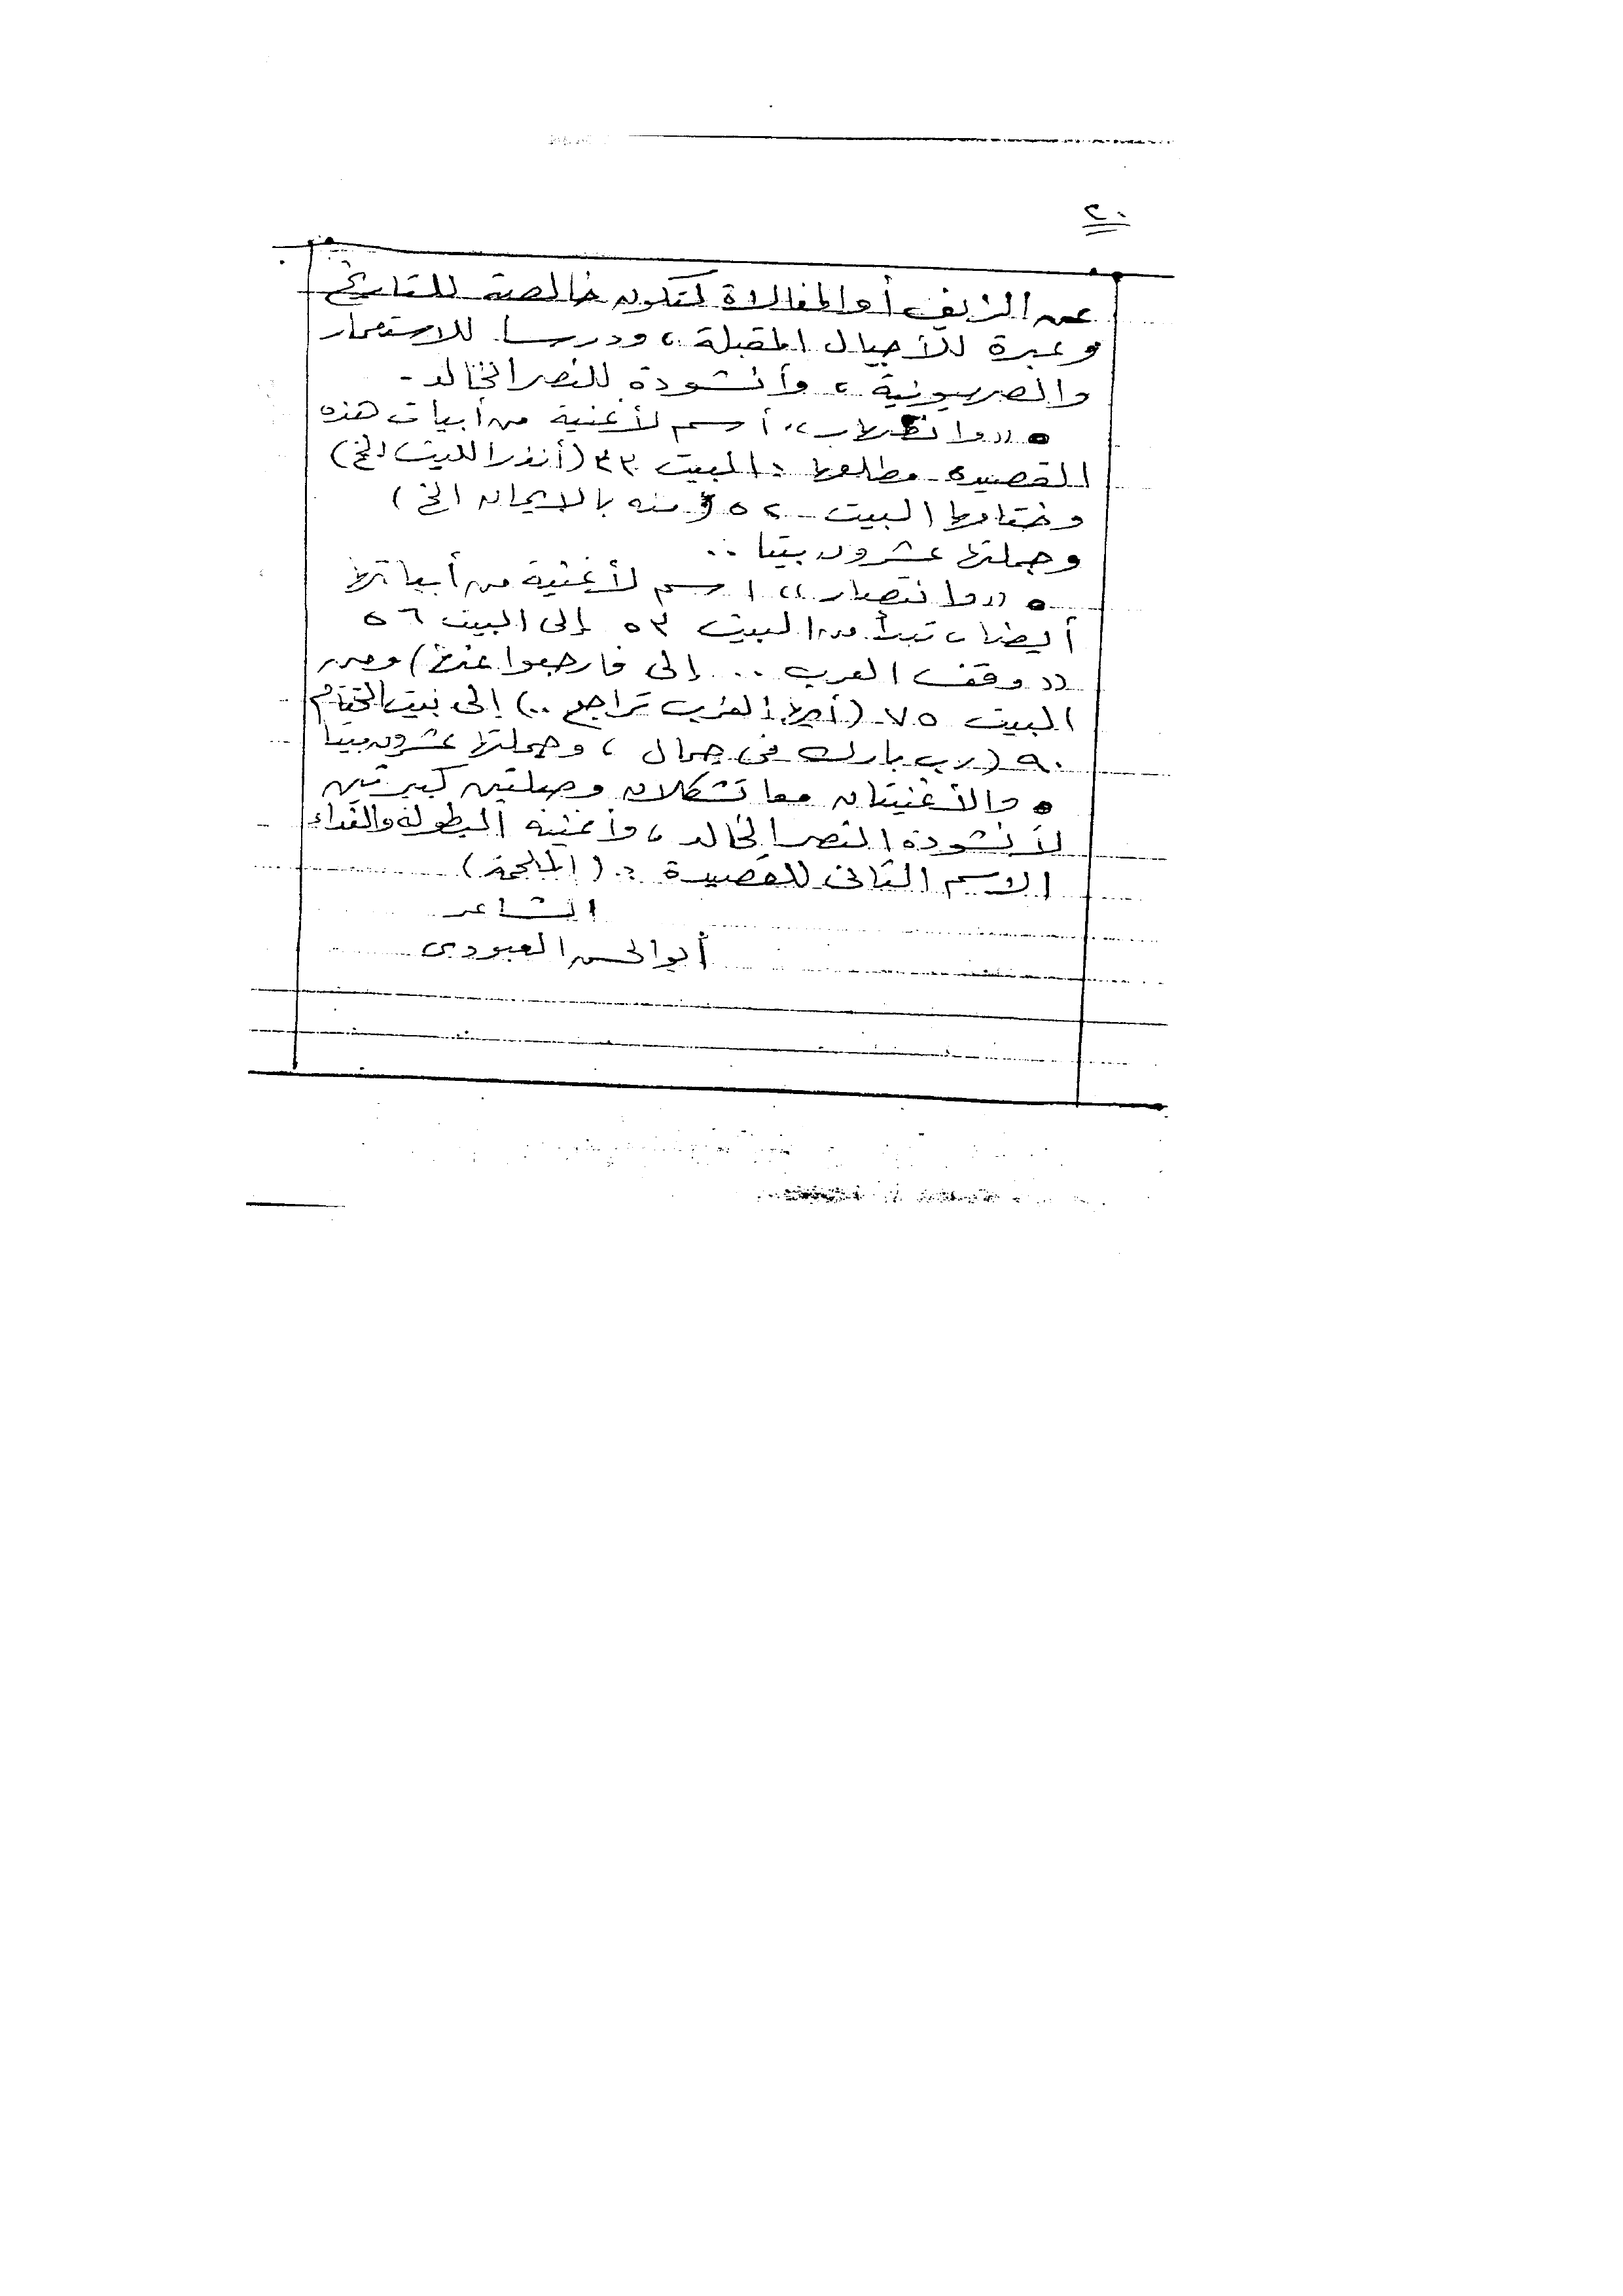 ٢٠
عن الزيف أو المغالاة لتكون خالصة للتاريخ
وعبرة للأجيال المقبلة، ودرسا للاستعمار
والصهيونية، وأنشودة للنصر الخالد -
● «وانطلاب» اسم لأغنية من أبيات هذه
القصيدة مطلعها: البيت ٣٣ (أنذرا لليث الخ)
وختامها البيت ٥٢ ومنه بالايمان الخ)
وجملتها عشرون بيتا ..
● «وانتصار» اسم لأغنية من أبياتها
أيضا، تبدأ من البيت ٥٣ إلى البيت ٥٦
«وقف العرب .. إلى فارجعوا عنها) ومن
البيت ٧٥ (أيها الغرب تراجع ..) إلى بيت الختام
٩٠ (رب بارك فى جمال، وجملتها عشرون بيتا
● والأغنيتان معا تشكلان وصلتين كبيرتين
لأنشودة النصر الخالد، وأغنية البطولة والفداء
الاسم الثانى للقصيدة: (الملحمة)
الشاعر
أبو الحسن العبودى